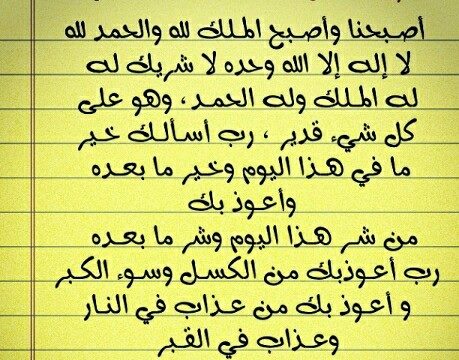 أصبحنا وأصبح الملك لله والحمد لله
لا إله إلا الله وحده لا شريك له
له الملك وله الحمد ، وهو على
كل شيء قدير ، رب أسألك خير
ما في هذا اليوم وخير ما بعده
وأعوذ بك
من شر هذا اليوم وشر ما بعده
رب أعوذبك من الكسل وسوء الكبر
و أعوذ بك من عذاب في النار
وعذاب في القبر